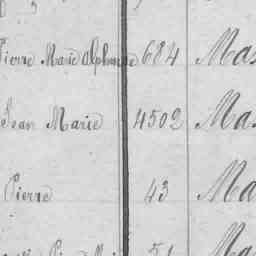 Pierre Marie Alphonse 684 Mas
Jean Marie 4502 Mas
Pierre 43 Ma
51 Ma